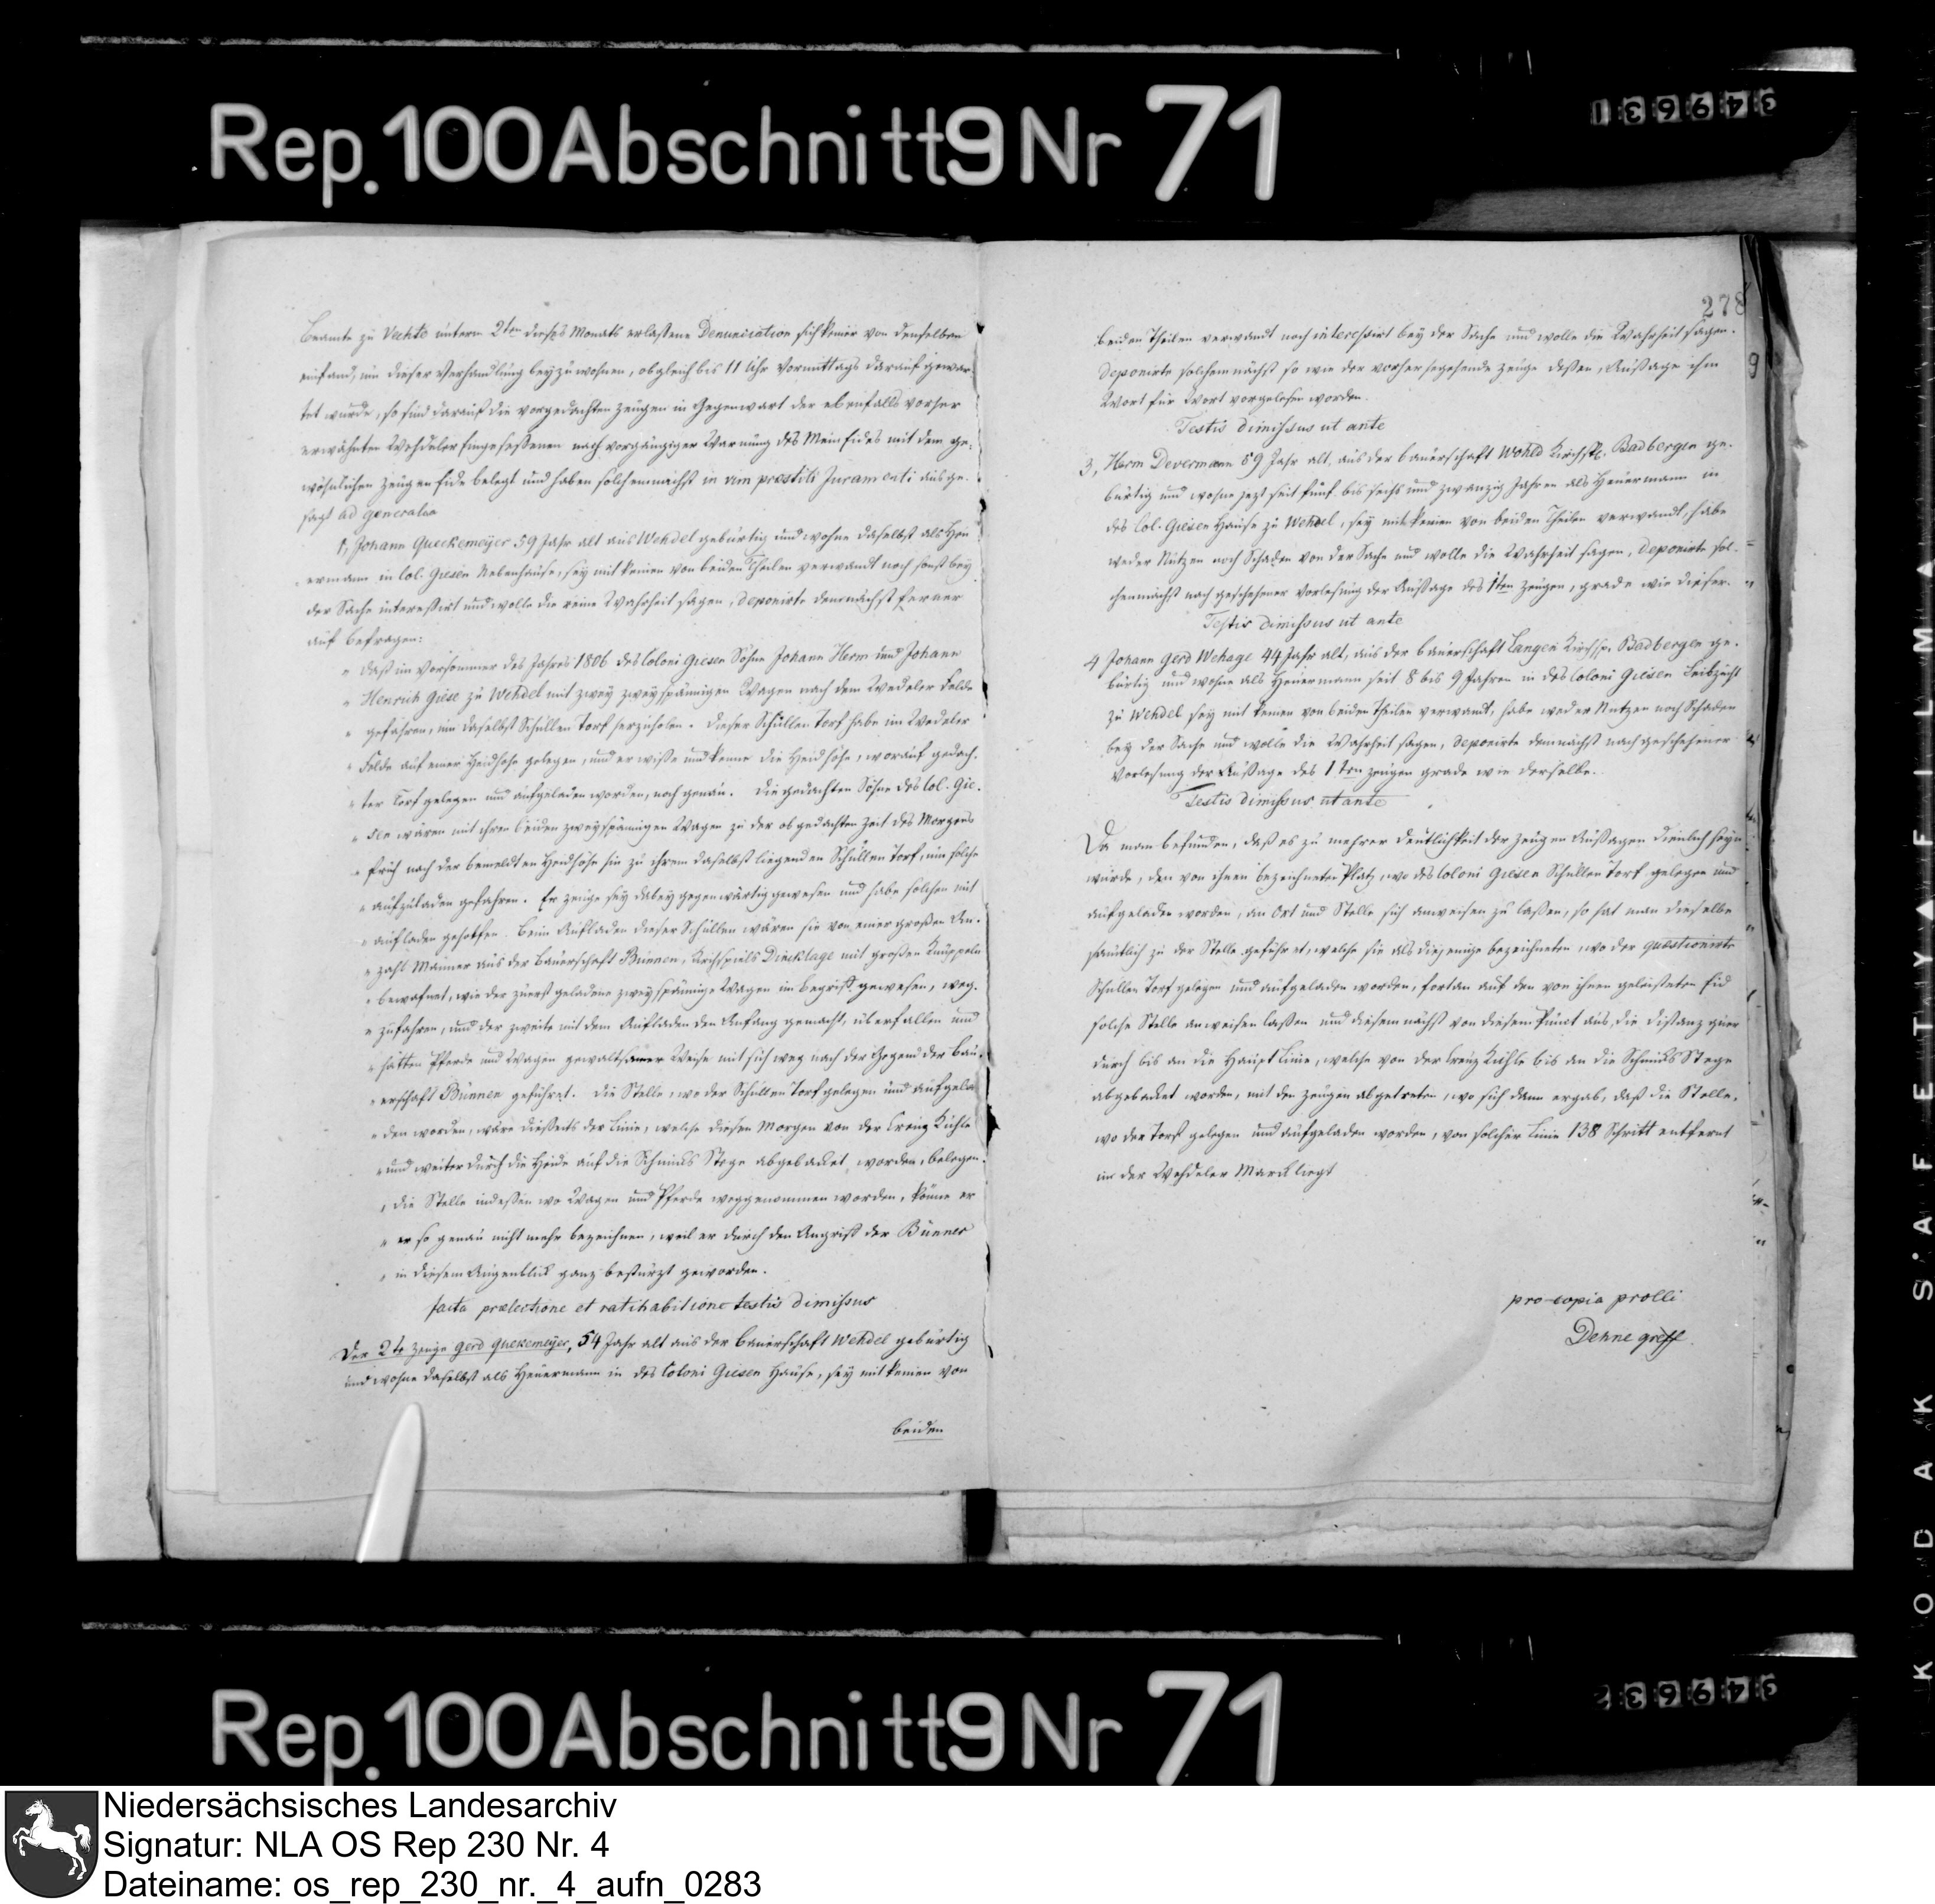 Rep. 100 Abschnitt 9 Nr 71
349631
Beamte zu Vechte unterm 2ten dieses Monats erlaßene Denunciation sich keiner von denselben
einfand, um dieser Verhandlung beyzuwohnen, obgleich bis 11 Uhr Vormittags darauf gewar-
tet wurde, so sind darauf die vorgedachten Zeugen in Gegenwart der ebenfalls vorher
erwähnten Wehdeler Eingeseßenen nach vorgängiger Warnung des Meineides mit dem ge-
wöhnlichen Zeugen Eide belegt und haben solchemnächst in vim præstiti Juramenti ausge-
sagt ad generalia
1, Johann Queckemeyer 59 Jahr alt aus Wehdel gebürtig und wohne daselbst als Heu-
ermann in Col. Giesen Nebenhause, sey mit keinen von beiden Theilen verwandt noch sonst bey
der Sache interessirt und wolle die reine Wahrheit sagen, deponirte demnächst ferner
auf befragen:
" daß im Vorsommer des Jahres 1806 des Coloni Giesen Söhne Johann Herm und Johann
" Henrich Giese zu Wehdel mit zwey zweyspännigen Wagen nach dem Wedeler Felde
" gefahren, um daselbst Schullen Torf herzuholen. Dieser Schullen Torf habe im Wedeler
" Felde auf einer Heidhöhe gelegen, und er wiße und kenne die Heidhöhe, worauf gedach-
" ter Torf gelegen und aufgeladen worden, noch genau. Die gedachten Söhne des Col. Gie-
" sen wären mit ihren beiden zweyspännigen Wagen zu der obgedachten Zeit des Morgens
" früh nach der bemeldten Heidhöhe hin zu ihrem daselbst liegenden Schullen Torf, um solche
" aufzuladen gefahren. Er Zeuge sey dabey gegenwärtig gewesen und habe solchen mit
" aufladen geholfen. Beim Aufladen dieser Schullen wären sie von einer großen An-
" zahl Männer aus der Bauerschaft Bünnen, Kirchspiels Dincklage mit großen Knüppeln
" bewafnet, wie der zuerst geladene zweyspännige Wagen im begriff gewesen, weg-
" zufahren, und der zweite mit dem Aufladen den Anfang gemacht, überfallen und
" hätten Pferde und Wagen gewaltsamer Weise mit sich weg nach der Gegend der Bau-
" erschaft Bünnen geführet. Die Stelle, wo der Schullen Torf gelegen und aufgela-
" den worden, wäre dießeits der Linie, welche diesen Morgen von der Creuz Kuhle
" und weiter durch die Heide auf die Schmids Stege abgebacket worden, belegen.
" die Stelle indeßen wo Wagen und Pferde weggenommen worden, könne er
" er so genau nicht mehr bezeichnen, weil er durch den Angriff der Bünner
" in diesem Augenblick ganz bestürzt geworden.
facta prælectione et ratihabitione testis dimissus
Der 2te Zeuge Gerd Quekemeyer, 54 Jahr alt aus der Bauerschaft Wehdel gebürtig
und wohne daselbst als Heuermann in des Coloni Giesen Hause, sey mit keinen von
beiden
278
beiden Theilen verwandt noch interessirt bey der Sache und wolle die Wahrheit sagen.
deponirte solchemnächst so wie der vorhersegehende Zeuge deßen, Aussage ihm
Wort für Wort vorgelesen worden.
Testis dimissus ut ante
3, Herm Devermann 59 Jahr alt, aus der Bauerschaft Wohld Kirchsp. Badbergen ge-
bürtig und wohne jezt seit fünf bis sechs und zwanzig Jahren als Heuermann in
des Col. Giesen Hause zu Wehdel, sey mit keinen von beiden Theilen verwandt, habe
weder Nutzen noch Schaden von der Sache und wolle die Wahrheit sagen, deponirte sol-
chemnächst nach geschehener Vorlesung der Aussage des 1ten Zeugen, grade wie dieser.
Testis dimissus ut ante
4 Johann Gerd Wehage 44 Jahr alt, aus der Bauerschaft Langen Kirchsp. Badbergen ge-
bürtig und wohne als Heuermann seit 8 bis 9 Jahren in des Coloni Giesen Leibzucht
zu Wehdel sey mit keinen von beiden Theilen verwandt, habe weder Nutzen noch Schaden
bey der Sache und wolle die Wahrheit sagen, deponirte demnächst nach geschehener
Vorlesung der Aussage des 1ten Zeugen grade wie derselbe.
Testis dimissus ut ante
Da man befunden, daß es zu mehrer Deutlichkeit der Zeugen Aussagen dienlich seyn
würde, den von ihnen bezeichneten Platz, wo des Coloni Giesen Schullen Torf gelegen und
aufgeladen worden, an Ort und Stelle sich anweisen zu laßen, so hat man dieselbe
sämtlich zu der Stelle geführet, welche sie als diejenige bezeichneten, wo der questionirte
Schullen Torf gelegen und aufgeladen worden, fortan auf den von ihnen geleisteten Eid
solche Stelle anweisen laßen und diesemnächst von diesem Punct aus, die Distanz quer
durch bis an die Haupt Linie, welche von der Creuz Kuhle bis an die Schmids Stege
abgebacket worden, mit den Zeugen abgetreten, wo sich dann ergab, daß die Stelle,
wo der Torf gelegen und aufgeladen worden, von solcher Linie 138 Schritt entfernt
in der Wehdeler Marck liegt
pro copia prolli
Dehne greff
KODAK SAFETY FILM
Rep. 100 Abschnitt 9 Nr 71
349632
Niedersächsisches Landesarchiv
Signatur: NLA OS Rep 230 Nr. 4
Dateiname: os_rep_230_nr._4_aufn_0283